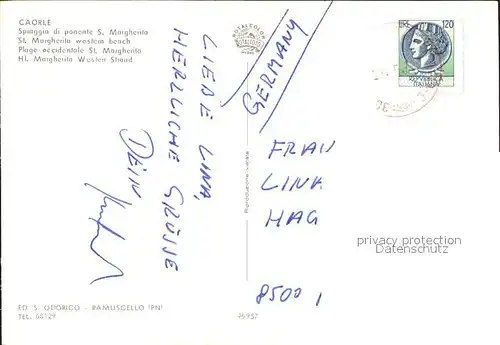 CAORLE
Spiaggia di ponente S. Margherita
St. Margherita western beach
Plage occidentale St. Margherita
Hl. Margherita Westen Strand
ROTALCOLOR
LIRE 120
REPVBBLICA
ITALIANA
GERMANY
LIEBE LINA,
HERZLICHE GRÜSSE
DEIN
FRAU
LINA
HAG
8500 1
Riproduzione vietata
privacy protection
Datenschutz
ED. S. ODORICO - RAMUSCELLO (PN)
TEL. 68129